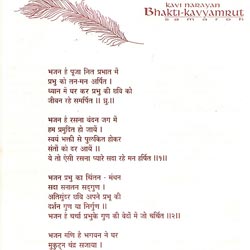 KAVI NARAYAN
Bhakti-kavyamrut
SAMAROH
भजन हे पूजा नित प्रभात में
प्रभु को तन-मन अर्पित ।
ध्यान में घर कर प्रभु की छवि को
जीवन रहे समर्पित ॥ ध्रु.॥
भजन हे रसना वंदन जग में
हम प्रमुदित हो जायें ।
स्वयं भक्ती से पुलकित होकर
संतों को दर आयें ॥
ये तो ऐसी रसना प्यारे सदा रहे मन हर्षित ॥१॥
भजन प्रभु का चिंतन - मंथन
सदा सनातन सद्गुण ।
अतिसुंदर छवि अपने प्रभु की
दर्शन गुण या निर्गुण ॥
भजन हे चर्चा प्रभुके गुण की वेदों में जो चर्चित ॥२॥
भजन मणि हे भगवन ने घर
मुकुटन् चंद्र सजाया ।